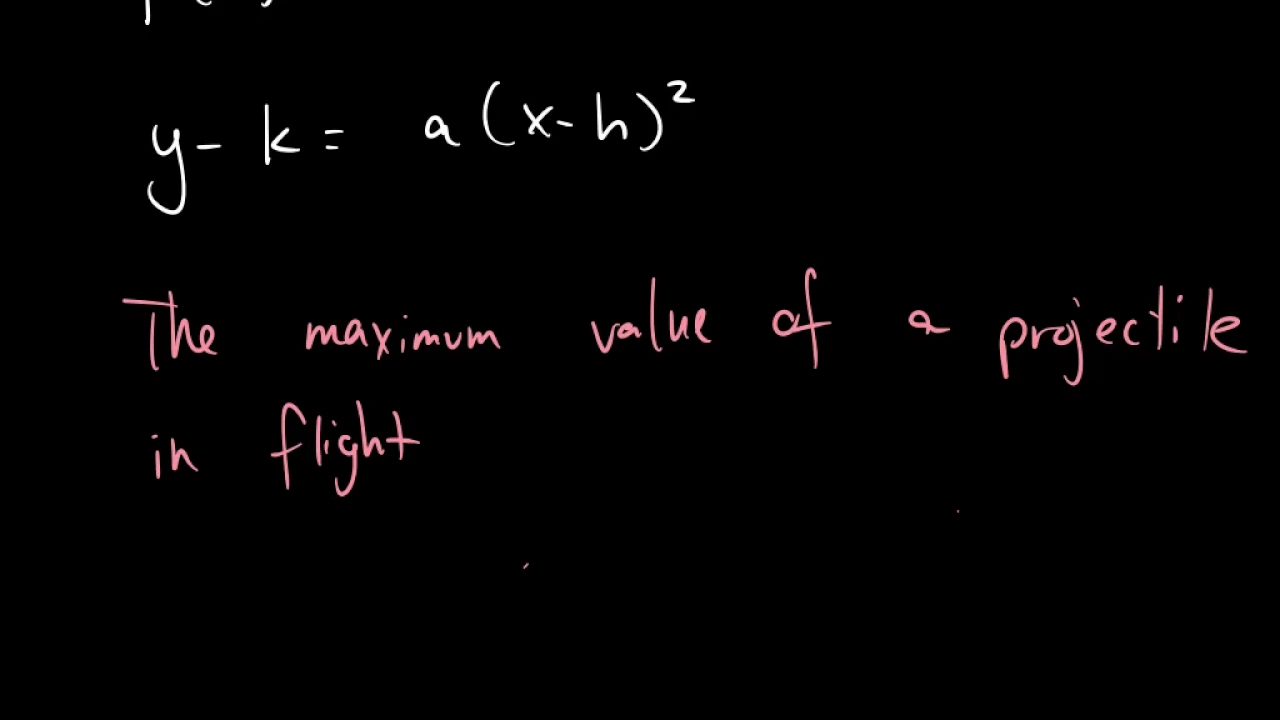 y - k = a(x-h)²
The maximum value of a projectile
in flight